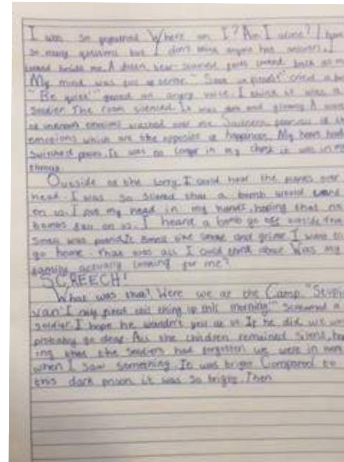 I was so petrified. Where am I? Am I alone? I have
so many questions but I don't think anyone has answers. I
looked beside me. A dozen, fear scarred faces looked back at me
My mind was out of sense. " cried a boy
"Be quiet" a angry voice. I think it was a
soldier. The room silenced. It was dark and gloomy. A wave
of unknown emotions washed over me. Sadness of the
emotions which are the opposite of happiness. My heart had
switched places. It was no longer in my chest it was in my
throat.
Outside of the lorry, I could hear the planes over
head. I was so scared that a bomb would land
on us. I put my head in my hands, hoping that no
bombs fall on us. I heard a bomb go off outside the
smell was putrid. It smelt like smoke and grime. I want to
go home. That was all I could think about. Was my
family actually looking for me?
SCREECH!
What was that? Were we at the Camp. "Stupid
van! I only fixed this thing up this morning!" Screamed a
soldier. I hope he wouldn't yell at us. If he did, we would
probably go deaf. All the children remained silent, hop
ing that the soldiers had forgotten we were in here
when I saw something. It was bright. Compared to
this dark prison it was so bright. Then